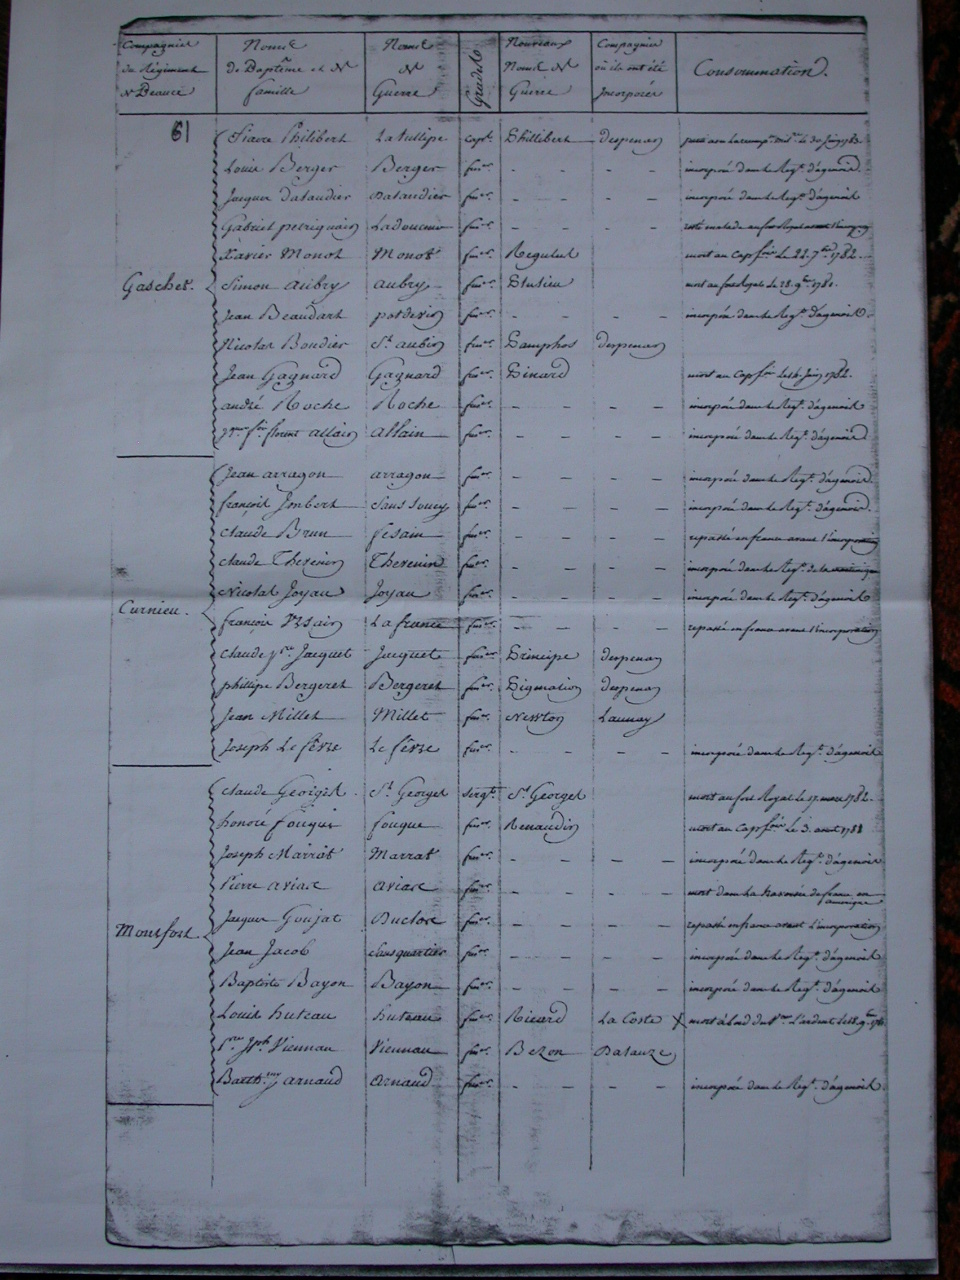 Compagnies du Régiment de Beauce | Noms de Baptême et de famille | Noms de Guerre | Grades | Nouveaux Noms de Guerre | Compagnies où ils ont été Incorporés | Consommation.
61
Gaschet.
Pierre Philibert | La tullipe | capl. | Phillibert | despenan
Louis Berger | Berger | fuer. | - | - - | incorporé dans le Regt. d'agenois.
Jacques dataudier | Dataudier | fuer. | - | - - | incorporé dans le Regt. d'agenois
Gabriel | Ladouceur | fuer. | - | - - | resté malade au fort Royal avant
Xavier Monot | Monot | fuer. | Regulus | mort au Cap le 22. 7bre 1782.
Simon aubry | aubry | fuer. | Plusieu | mort au fort Royal le 28. 9bre
Jean Beaudart | potdevin | fuer. | - | - - | incorporé dans le Regt. d'agenois.
Nicolas Boudier | St. aubin | fuer. | Pamphos | despenan
Jean Gagnard | Gagnard | fuer. | Pinard | mort au Cap le Juin 1782.
andré Roche | Roche | fuer. | - | - - | incorporé dans le Regt. d'agenois
florent allain | allain | fuer. | - | - - | incorporé dans le Regt. d'agenois
Curnieu.
Jean arragon | arragon | fuer. | - | - - | incorporé dans le Regt. d'agenois.
françois Joubert | Sans Soucy | fuer. | - | - - | incorporé dans le Regt. d'agenois.
claude Brun | fesain | fuer. | - | - - | repassé en france avant l'incorporation
claude Thevenin | Thevenin | fuer. | - | - - | incorporé dans le Regt. de la
Nicolas Joyau | Joyau | fuer. | - | - - | incorporé dans le Regt. d'agenois
françois | La france | fuer. | - | - - | repassé en france avant l'incorporation
claude Jacquet | Jacquet | fuer. | Principe | despenan
phillipe Bergeret | Bergeret | fuer. | Pigmation | despenan
Jean Millet | Millet | fuer. | Newton | Launay
Joseph Le fêvre | Le fêvre | fuer. | - | - - | incorporé dans le Regt. d'agenois
Montfort.
claude Georges | St. Georges | sergt. | St. Georges | mort au fort Royal le 17. mars 1782.
honoré fouque | fouque | fuer. | Renaudin | mort au Cap le 3. aout
Joseph Marrat | Marrat | fuer. | - | - - | incorporé dans le Regt. d'agenois
Pierre aviax | aviax | fuer. | - | - - | mort dans la traversée de france en amerique
Jacques Goujat | Duclox | fuer. | - | - - | repassé en france avant l'incorporation
Jean Jacob | Sansquartier | fuer. | - | - - | incorporé dans le Regt. d'agenois
Baptiste Bayon | Bayon | fuer. | - | - - | incorporé dans le Regt. d'agenois
Louis huteau | huteau | fuer. | Ricard | La Coste | X mort à bord du Vau. L'ardent le
Jph Viennau | Viennau | fuer. | Bezon | Dalauze
Barthmy arnaud | arnaud | fuer. | - | - - | incorporé dans le Regt. d'agenois